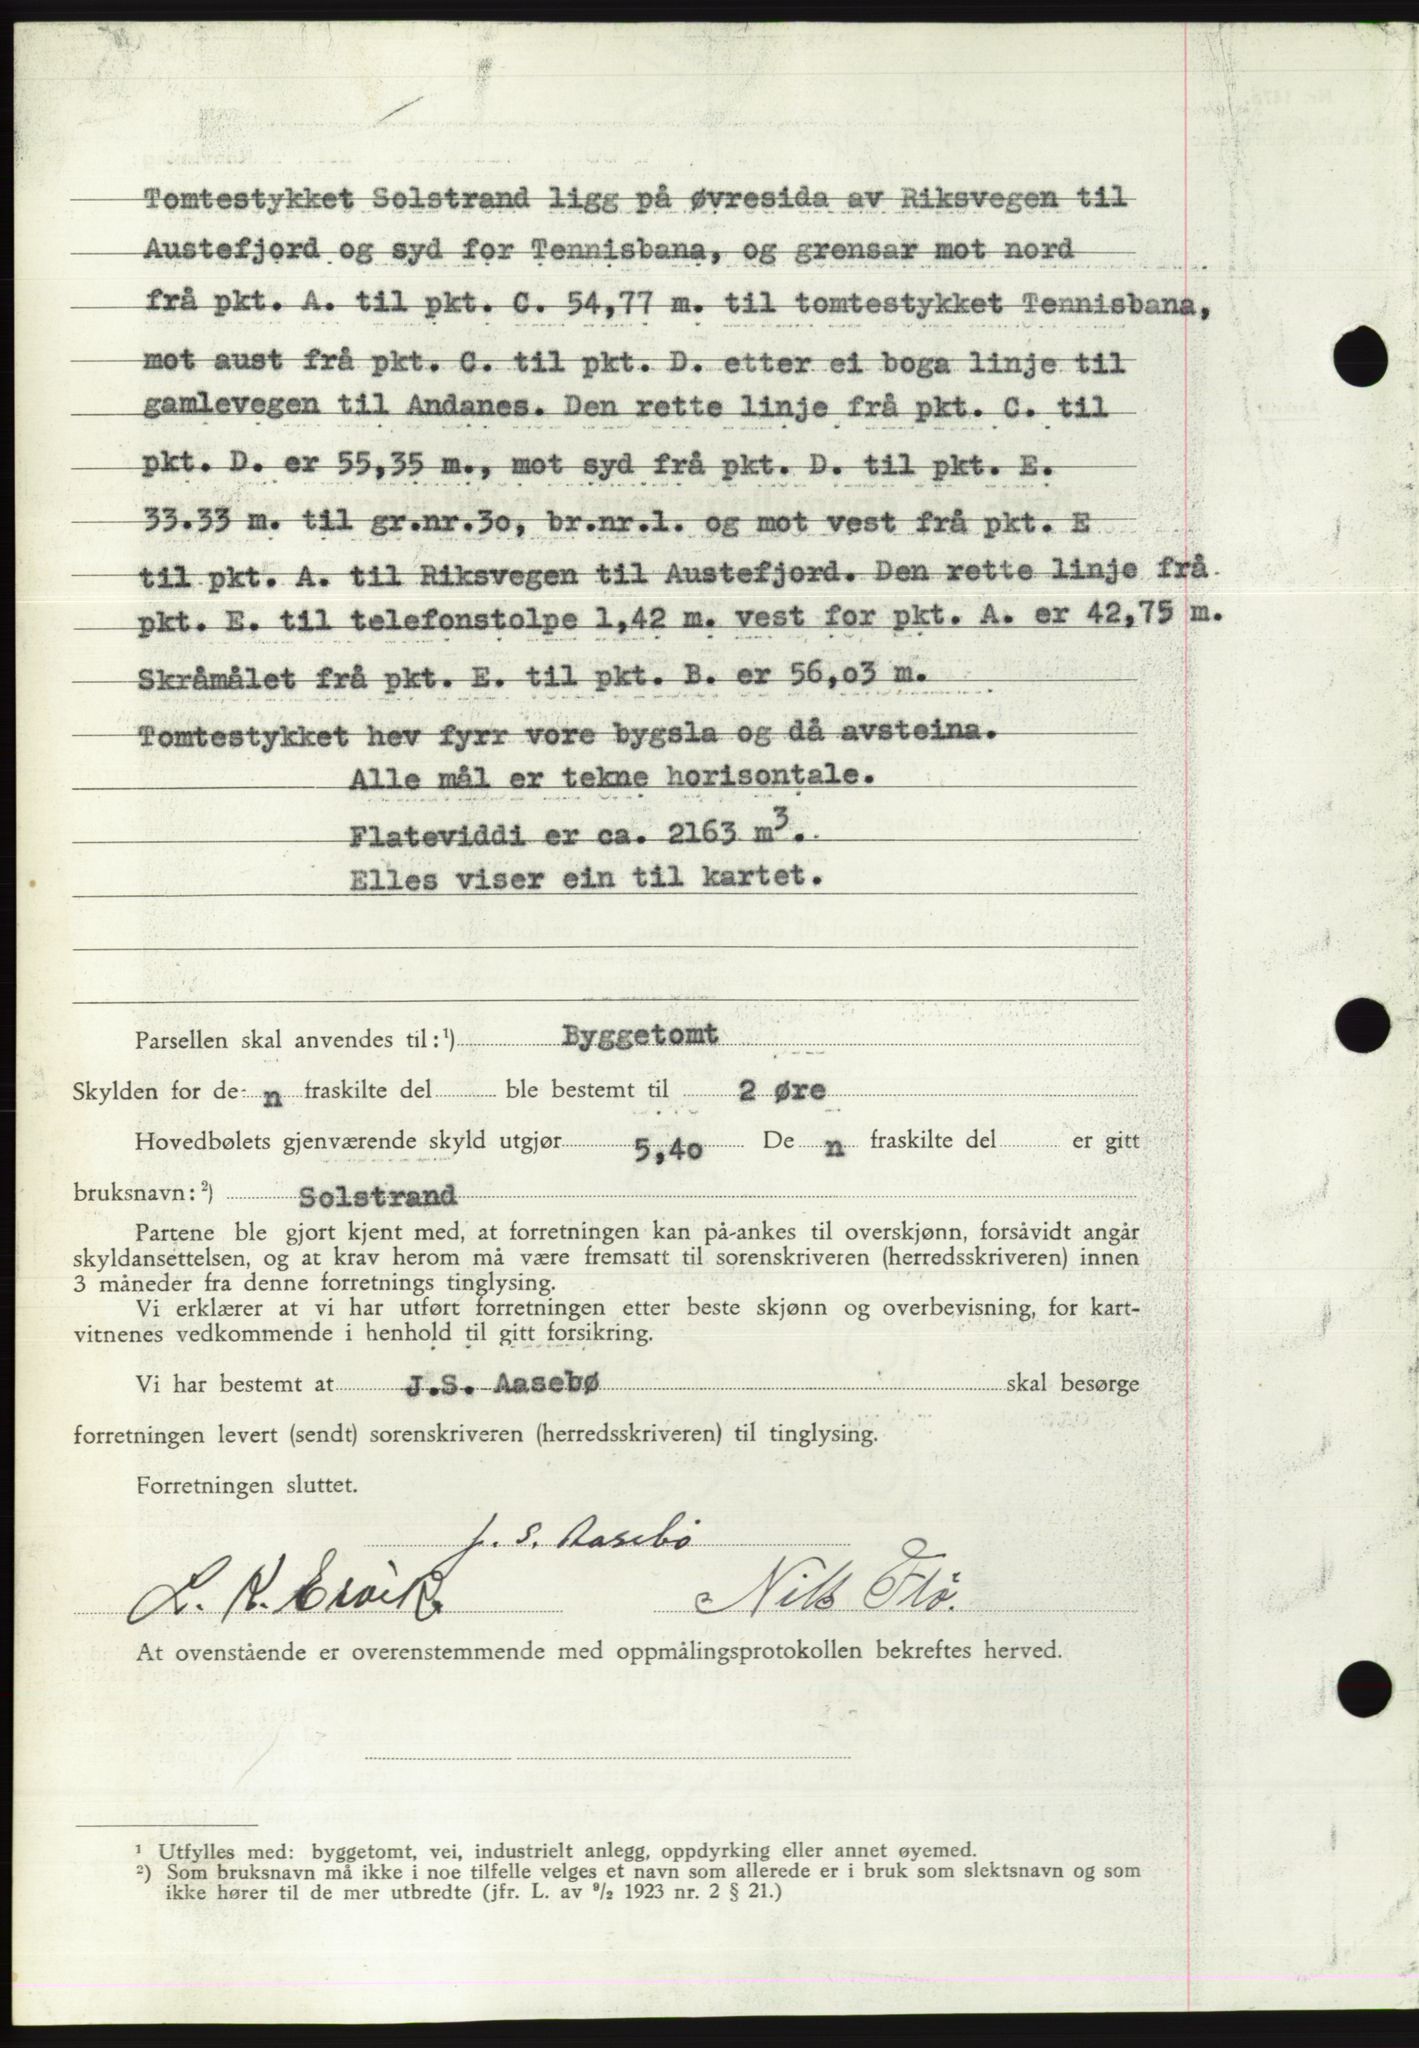 Tomtestykket Solstrand ligg på øvresida av Riksvegen til
Austefjord og syd for Tennisbana, og grensar mot nord
frå pkt. A. til pkt. C. 54,77 m. til tomtestykket Tennisbana,
mot aust frå pkt. C. til pkt. D. etter ei boga linje til
gamlevegen til Andanes. Den rette linje frå pkt. C. til
pkt. D. er 55,35 m., mot syd frå pkt. D. til pkt. E.
33.33 m. til gr.nr.30, br.nr.1. og mot vest frå pkt. E
til pkt. A. til Riksvegen til Austefjord. Den rette linje frå
pkt. E. til telefonstolpe 1,42 m. vest for pkt. A. er 42,75 m.
Skråmålet frå pkt. E. til pkt. B. er 56,03 m.
Tomtestykket hev fyrr vore bygsla og då avsteina.
Alle mål er tekne horisontale.
Flateviddi er ca. 2163 m³.
Elles viser ein til kartet.
Parsellen skal anvendes til:¹) Byggetomt
Skylden for de n fraskilte del ble bestemt til 2 øre
Hovedbølets gjenværende skyld utgjør 5,40 De n fraskilte del er gitt
bruksnavn:²) Solstrand
Partene ble gjort kjent med, at forretningen kan på-ankes til overskjønn, forsåvidt angår
skyldansettelsen, og at krav herom må være fremsatt til sorenskriveren (herredsskriveren) innen
3 måneder fra denne forretnings tinglysing.
Vi erklærer at vi har utført forretningen etter beste skjønn og overbevisning, for kart-
vitnenes vedkommende i henhold til gitt forsikring.
Vi har bestemt at J.S. Aasebø skal besørge
forretningen levert (sendt) sorenskriveren (herredsskriveren) til tinglysing.
Forretningen sluttet.
J. S. Aasebø
L. K. Nils Flø.
At ovenstående er overenstemmende med oppmålingsprotokollen bekreftes herved.
¹ Utfylles med: byggetomt, vei, industrielt anlegg, oppdyrking eller annet øyemed.
²) Som bruksnavn må ikke i noe tilfelle velges et navn som allerede er i bruk som slektsnavn og som
ikke hører til de mer utbredte (jfr. L. av ⁹/₂ 1923 nr. 2 § 21.)